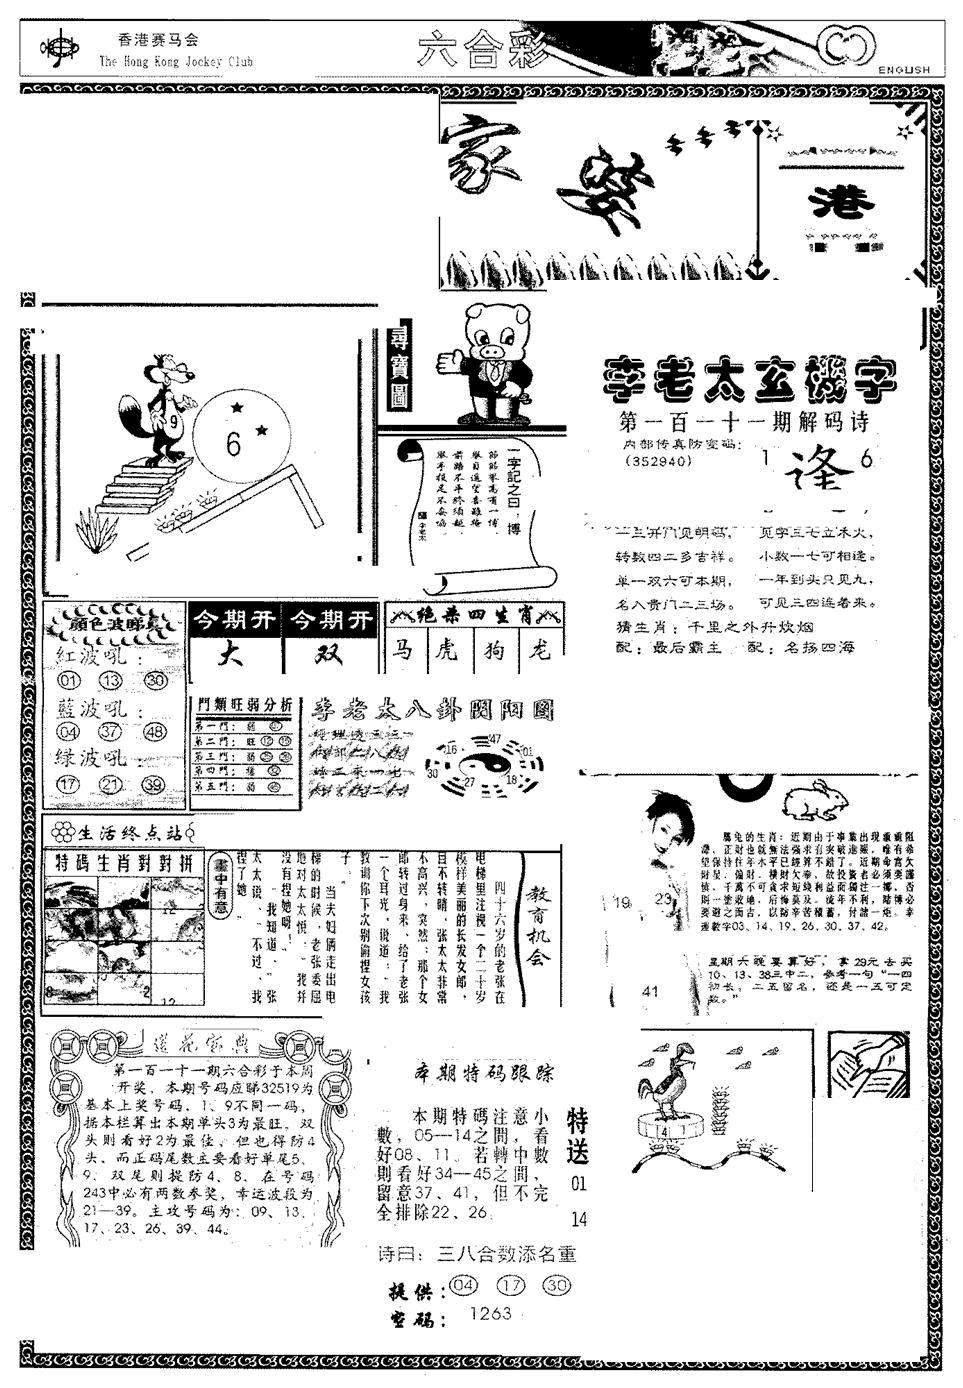 香港赛马会
The Hong Kong Jockey Club
六合彩
ENGLISH
家
港
尋寶圖
9
6
一字記之曰：博
李老太玄機字
第一百一十一期解码诗
内部传真防密码：
(352940)
1
逢
6
一三开门见明码， 见字三七立木火，
转数四二多吉祥。 小数一七可相逢。
单一双六可本期， 一年到头只见九，
名入贵门二三场。 可见三四连着来。
猜生肖：千里之外升炊烟
配：最后霸主 配：名扬四海
顏色波睇真
紅波吼：
01 13 30
藍波吼：
04 37 48
绿波吼：
17 21 39
今期开 今期开
大 双
绝杀四生肖
马 虎 狗 龙
門類旺弱分析
第一門：弱
第二門：旺
第三門：弱
第四門：
第五門：弱
李老太八卦阴阳圖
16 47 01
30 27 18
生活终点站
特碼生肖對對拼
12
8 2 12
畫中有意
教育机会
四十六岁的老张在
电梯里注视一个二十岁
模样美丽的长发女郎，
目不转睛，张太太非常
不高兴，突然；那个女
郎转过身来、给了老张
一个耳光，说道：“我
教训你下次别偷捏女孩
子。”
当夫妇俩走出电
梯的时候，老张委屈
地对太太说，“我并
没有捏她呀！”
“我知道，”张
太太说，“不过，我
捏了她。”
19 23
41
属兔的生肖：近期由于事業出现重重阻
滞、正财也就無法强求有突破進展。唯有希
望保持往年水平已經算不錯了。近期命宫欠
财星，偏财、横财欠奉，故投資者必须要謹
慎，千萬不可貪求短綫利益而獨注一擲，否
则一塗败地、后悔莫及。流年不利，賭博必
要避之而吉，以防辛苦積蓄，付諸一炬。幸
運數字03、14、19、26、30、37、42。
星期六晚要算好，拿29元去买
10、13、38三中二，参考一句“一四
初长，二五留名，还是一五可定
数。”
莲花宝典
第一百一十一期六合彩于本周
开奖，本期号码应睇32519为
基本上奖号码，1、9不同一码，
据本栏算出本期单头3为最旺，双
头则看好2为最佳，但也得防4
头，而正码尾数主要看好单尾5、
9，双尾则提防4、8，在号码
243中必有两数参奖，幸运波段为
21—39。主攻号码为：09、13、
17、23、26、39、44。
本期特码跟踪
本期特碼注意小
數，05—14之間，看
好08、11。若轉中數
則看好34—45之間，
留意37、41，但不完
全排除22、26。
特送
01
14
诗曰：三八合数添名重
提供：04 17 30
密码：1263
14 1